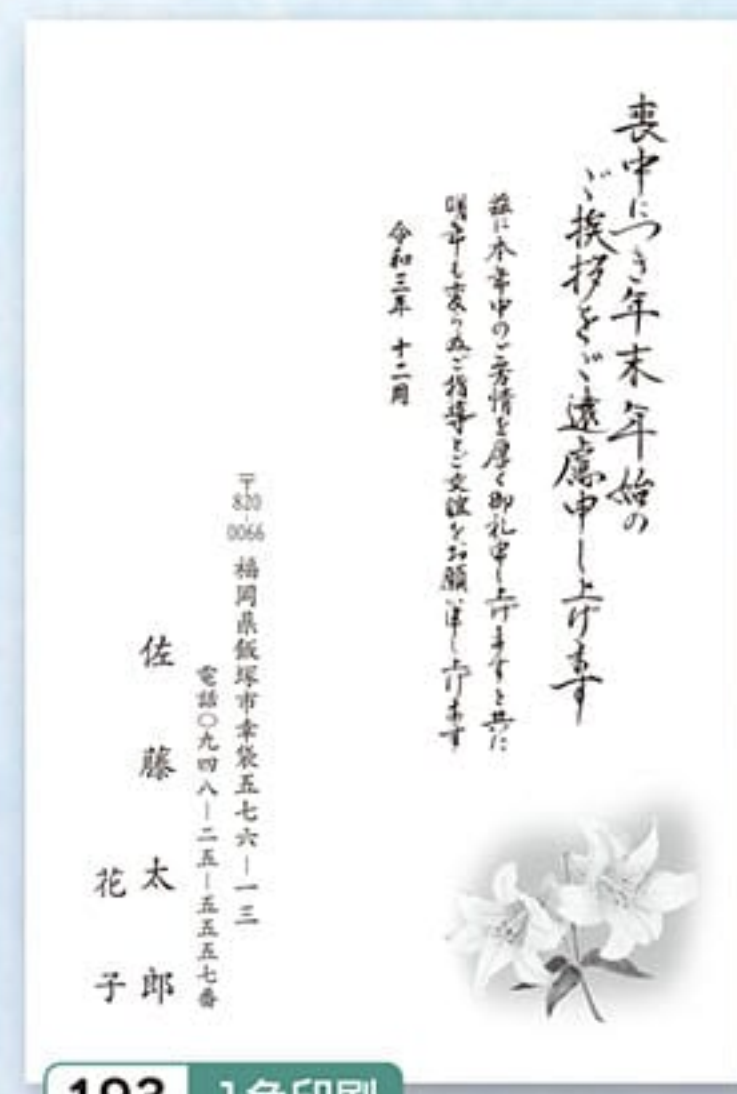 喪中につき年末年始の
ご挨拶をご遠慮申し上げます
茲に本年中のご芳情を厚く御礼申し上げますと共に
明年も変らぬご指導とご交誼をお願い申し上げます
令和三年 十二月
〒820-0066 福岡県飯塚市幸袋五七六―一三
電話〇九四八―二五―五五五七番
佐藤 太郎
花子
193 1色印刷